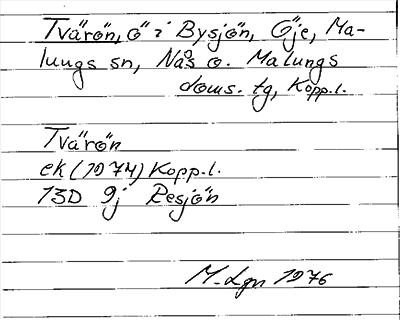 Tvärön, ö i Bysjön, Öje, Ma-
lungs sn, Nås o. Malungs
doms. tg, Kopp.l.
Tvärön
ek (1974) Kopp.l.
13D 9j Resjön
M-Lgn 1976